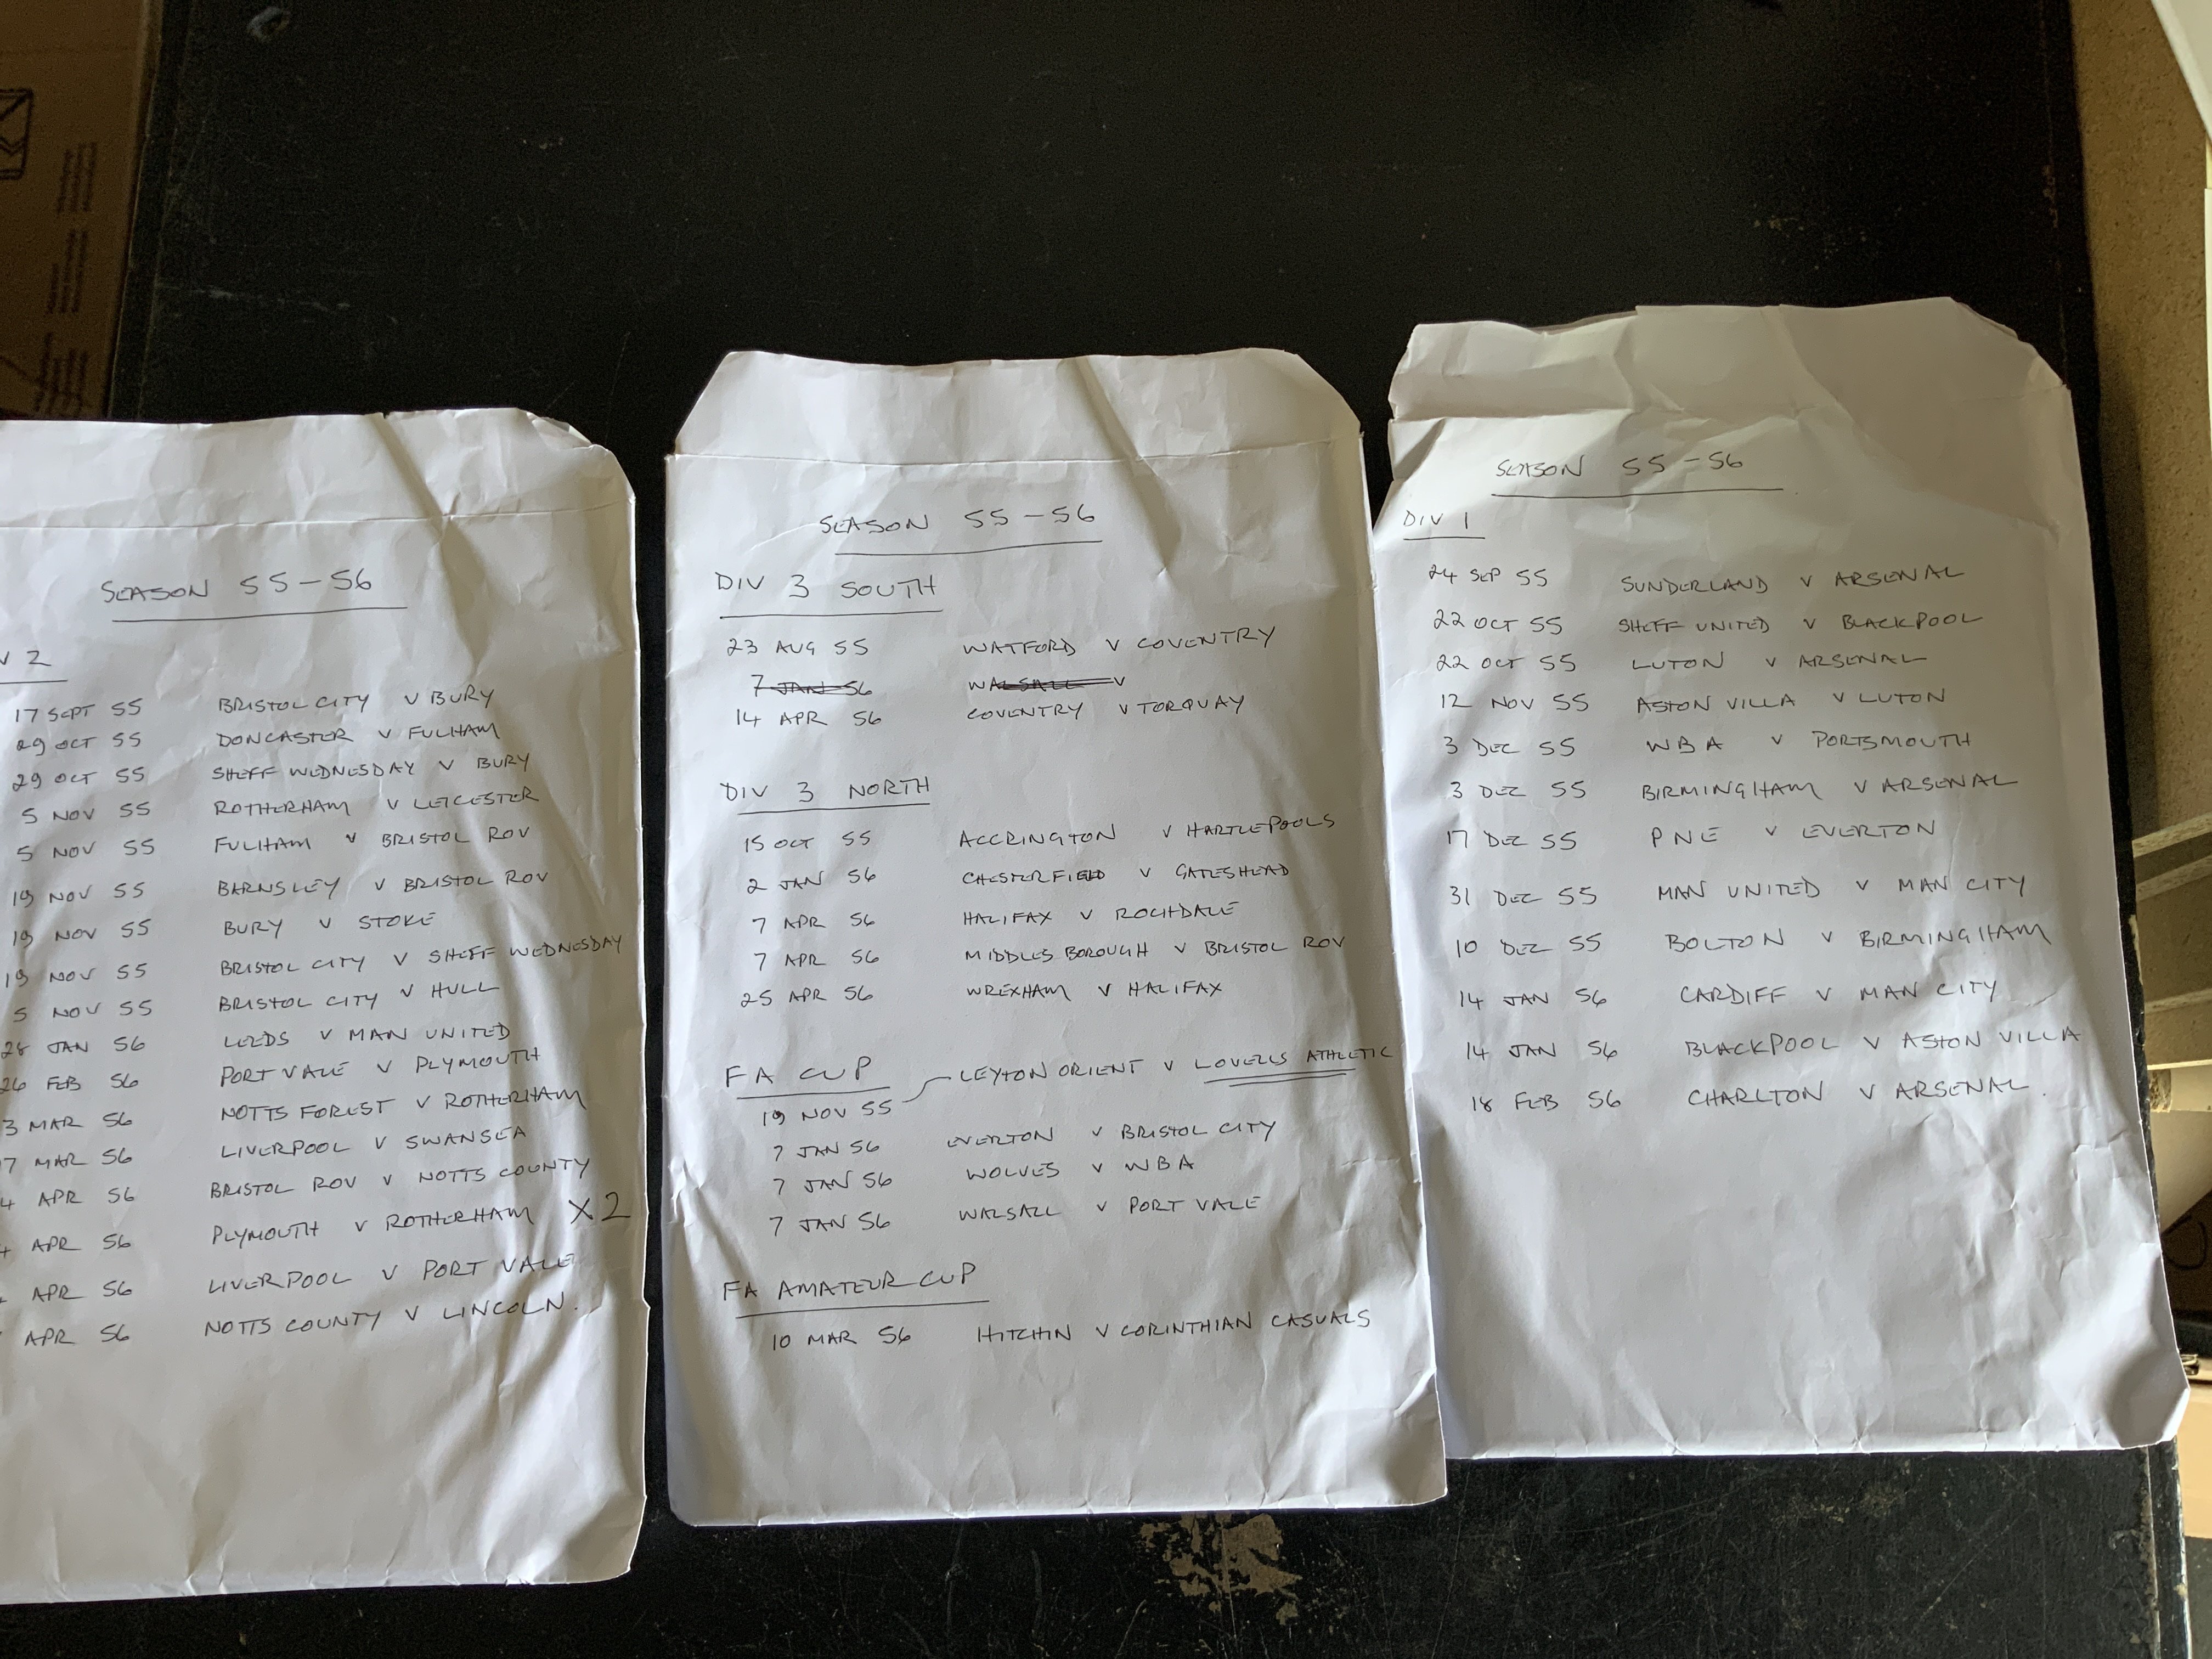 SEASON 55-56
V 2
17 SEPT 55 BRISTOL CITY V BURY
29 OCT 55 DONCASTER V FULHAM
29 OCT 55 SHEFF WEDNESDAY V BURY
5 NOV 55 ROTHERHAM V LEICESTER
5 NOV 55 FULHAM V BRISTOL ROV
19 NOV 55 BARNSLEY V BRISTOL ROV
19 NOV 55 BURY V STOKE
19 NOV 55 BRISTOL CITY V SHEFF WEDNESDAY
5 NOV 55 BRISTOL CITY V HULL
28 JAN 56 LEEDS V MAN UNITED
26 FEB 56 PORT VALE V PLYMOUTH
3 MAR 56 NOTTS FOREST V ROTHERHAM
7 MAR 56 LIVERPOOL V SWANSEA
4 APR 56 BRISTOL ROV V NOTTS COUNTY
APR 56 PLYMOUTH V ROTHERHAM X2
APR 56 LIVERPOOL V PORT VALE
APR 56 NOTTS COUNTY V LINCOLN.
SEASON 55-56
DIV 3 SOUTH
23 AUG 55 WATFORD V COVENTRY
7 JAN 56 WALSALL V
14 APR 56 COVENTRY V TORQUAY
DIV 3 NORTH
15 OCT 55 ACCRINGTON V HARTLEPOOLS
2 JAN 56 CHESTERFIELD V GATESHEAD
7 APR 56 HALIFAX V ROCHDALE
7 APR 56 MIDDLESBOROUGH V BRISTOL ROV
25 APR 56 WREXHAM V HALIFAX
FA CUP
19 NOV 55 LEYTON ORIENT V LOVELLS ATHLETIC
7 JAN 56 EVERTON V BRISTOL CITY
7 JAN 56 WOLVES V WBA
7 JAN 56 WALSALL V PORT VALE
FA AMATEUR CUP
10 MAR 56 HITCHIN V CORINTHIAN CASUALS
SEASON 55-56
DIV 1
24 SEP 55 SUNDERLAND V ARSENAL
22 OCT 55 SHEFF UNITED V BLACKPOOL
22 OCT 55 LUTON V ARSENAL
12 NOV 55 ASTON VILLA V LUTON
3 DEC 55 WBA V PORTSMOUTH
3 DEC 55 BIRMINGHAM V ARSENAL
17 DEC 55 PNE V EVERTON
31 DEC 55 MAN UNITED V MAN CITY
10 DEC 55 BOLTON V BIRMINGHAM
14 JAN 56 CARDIFF V MAN CITY
14 JAN 56 BLACKPOOL V ASTON VILLA
18 FEB 56 CHARLTON V ARSENAL.